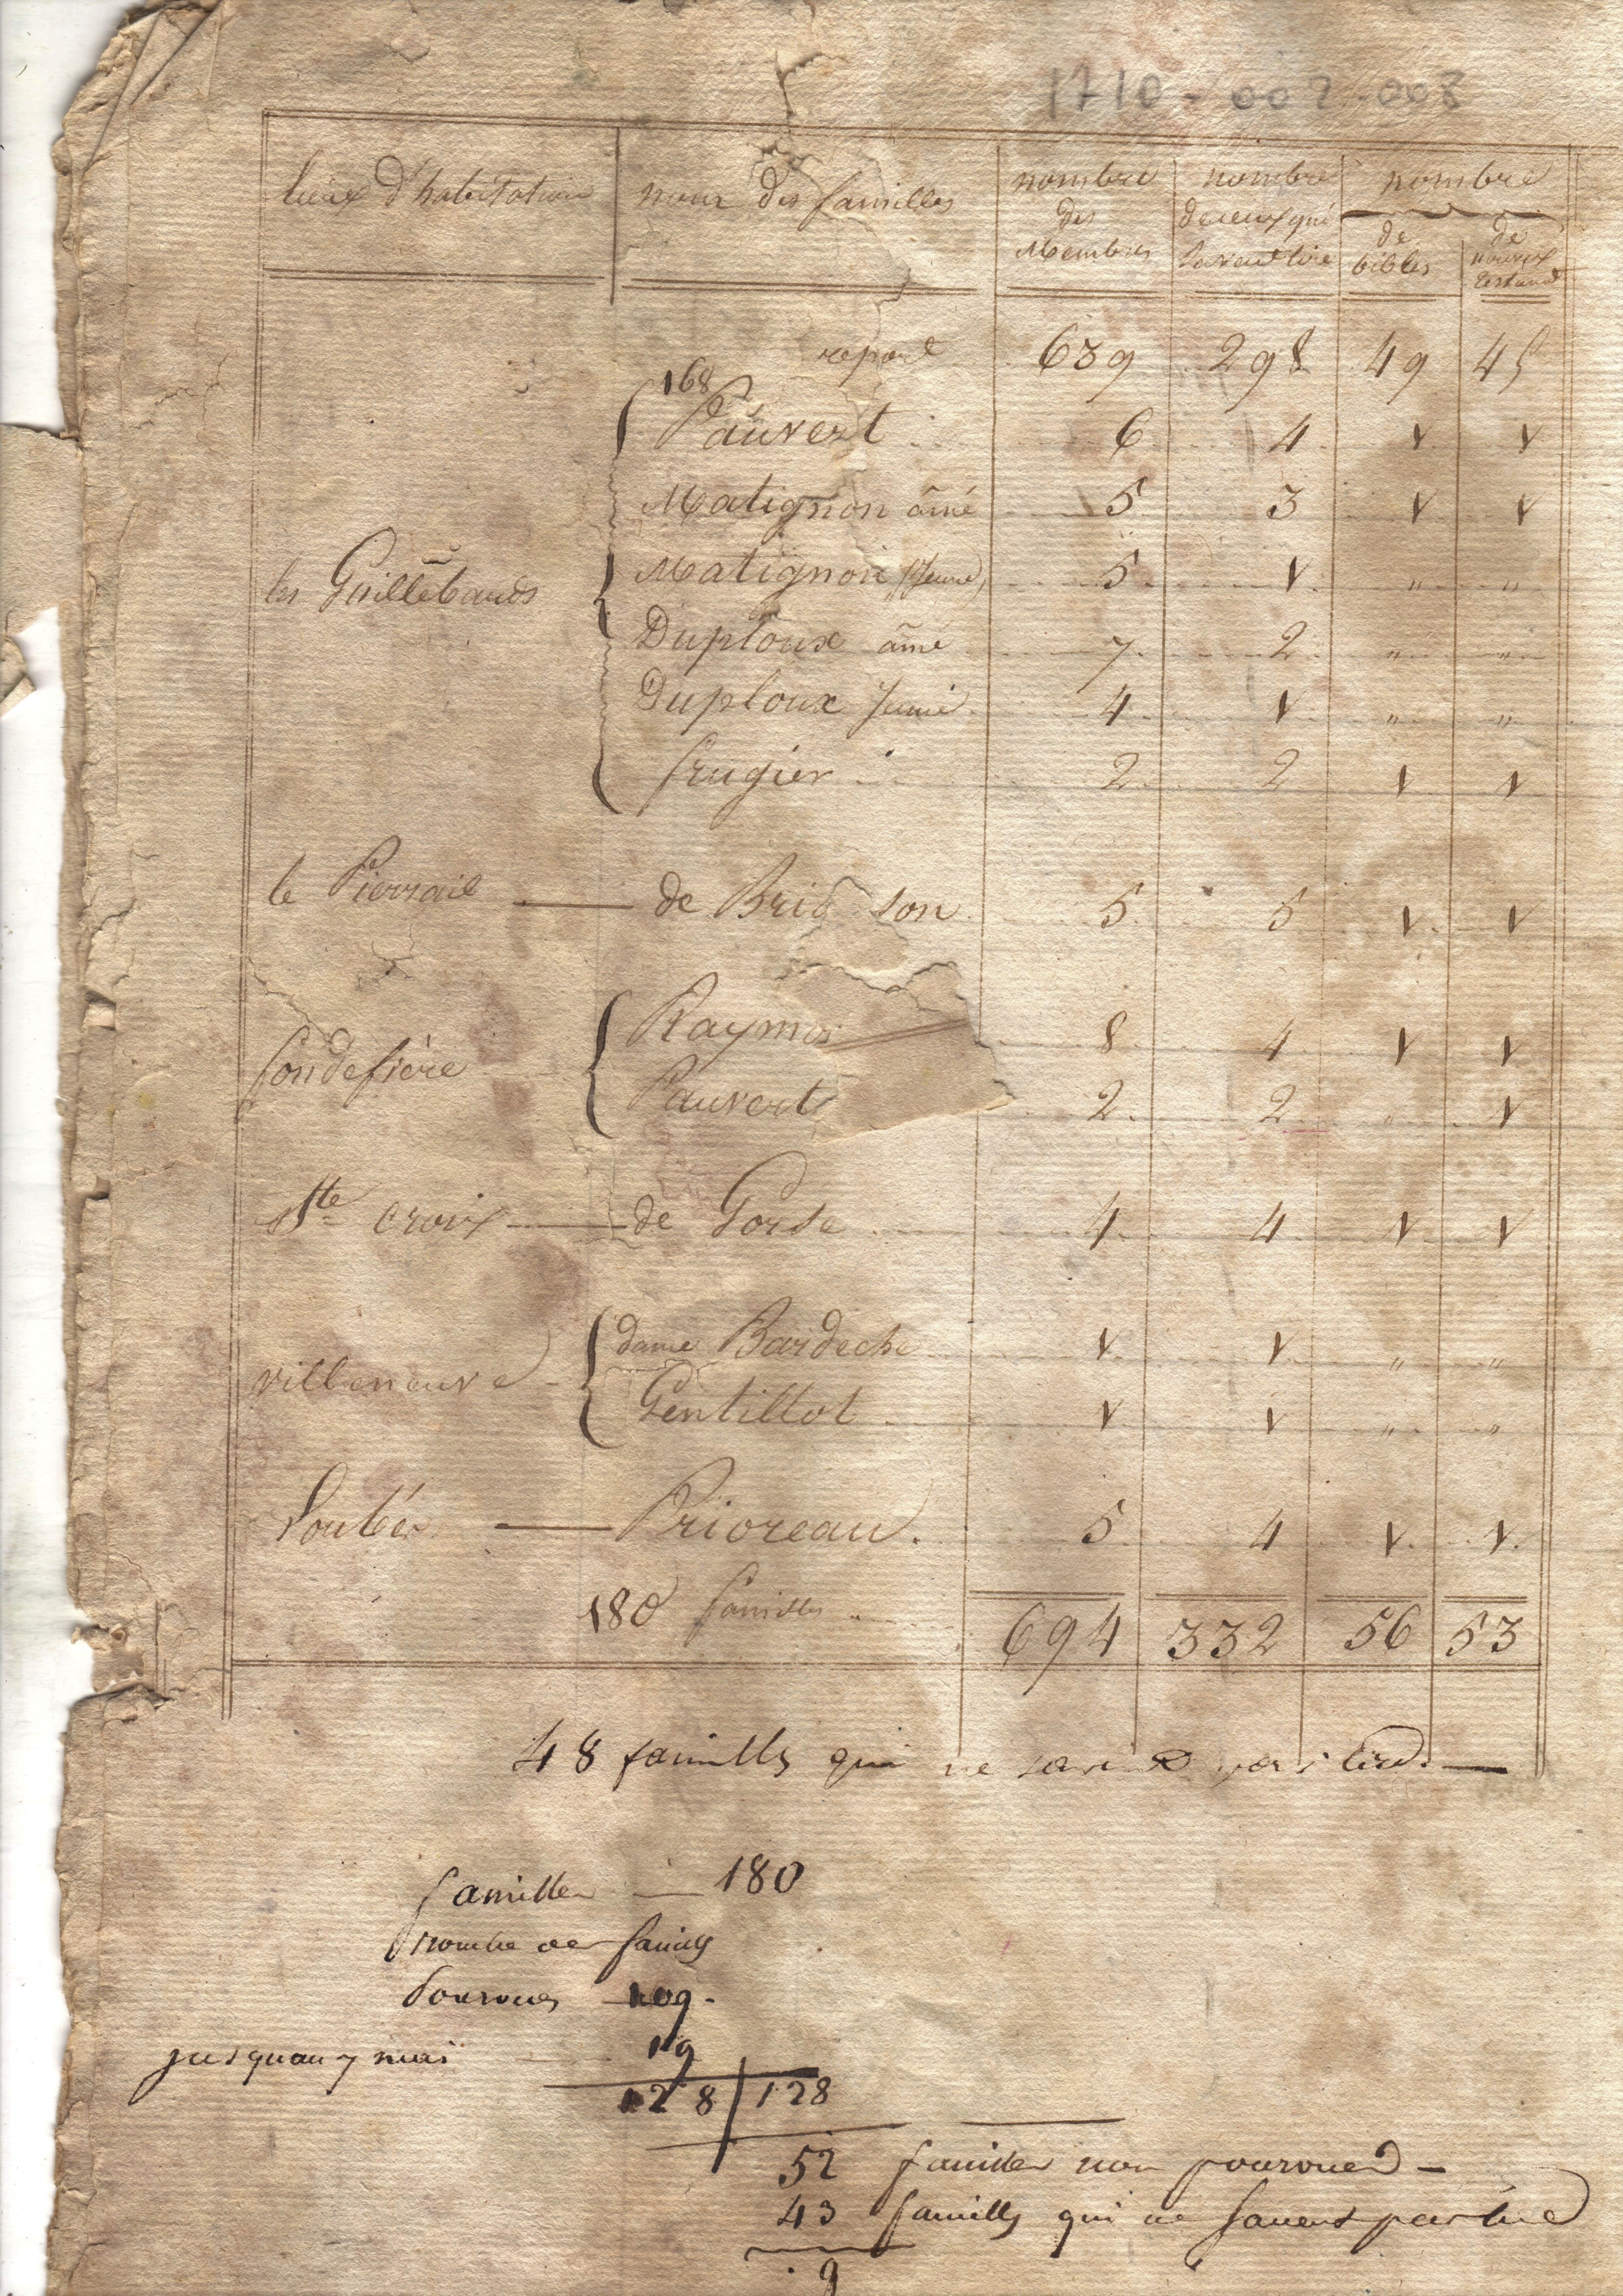 1710-002-003
lieux d'habitation noms des familles nombre des Membres nombre de ceux qui savent lire nombre de bibles de nouveaux testam
report 639 298 49 45
168
Pauvert 6 4 1 1
Matignon aîné 5 3 1 1
les Guillebauds Matignon (Jeune) 5 1 " "
Duploux aîné 7 2 " "
Duploux Jeune 4 1 " "
frugier 2 2 1 1
le Pierrail — de Brid son 5 5 1 1
fondefière Raymo 8 4 1 1
Pauvert 2 2 " 1
Ste croix — de Gorse 4 4 1 1
villeneuve dame Bardeche 1 1 " "
Gentillot 1 1 " "
Soubés — Prioreau. 5 4 1 1
180 familles 694 332 56 53
48 familles qui ne savent pas lire —
familles — 180
nombre des familles
Pourvues 109-
jusquau 7 mai 19
128 128
52 familles non pourvues -
43 familles qui ne savent pas lire
9